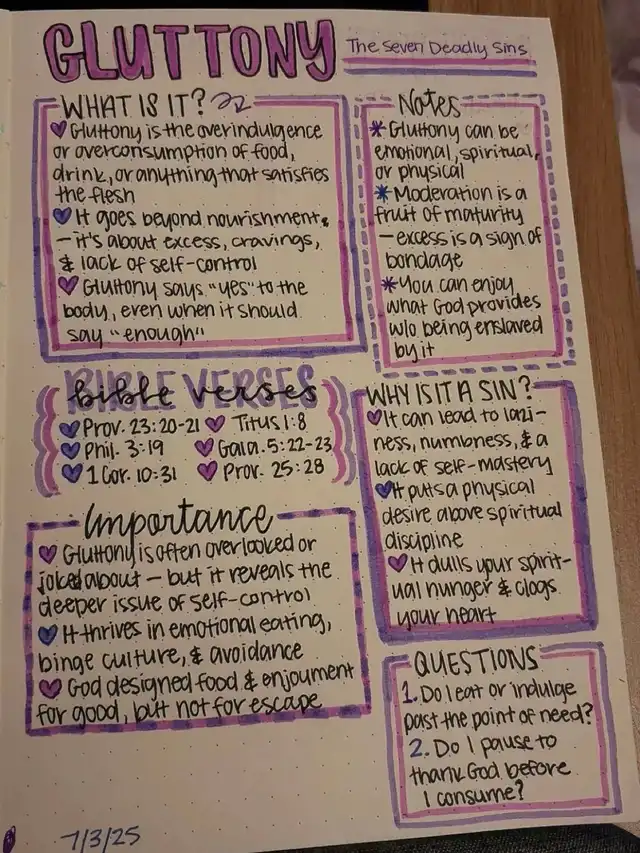 GLUTTONY
The Seven Deadly Sins
WHAT IS IT?
Gluttony is the overindulgence
or overconsumption of food,
drink, or anything that satisfies
the flesh
It goes beyond nourishment
— it's about excess, cravings,
& lack of self-control
Gluttony says "yes" to the
body, even when it should
say "enough"
Notes
*Gluttony can be
emotional, spiritual,
or physical
*Moderation is a
fruit of maturity
— excess is a sign of
bondage
*You can enjoy
what God provides
w/o being enslaved
by it
BIBLE VERSES
bible verses
Prov. 23:20-21 Titus 1:8
Phil. 3:19 Gala. 5:22-23
1 Cor. 10:31 Prov. 25:28
WHY IS IT A SIN?
It can lead to lazi-
ness, numbness, & a
lack of self-mastery
It puts a physical
desire above spiritual
discipline
It dulls your spirit-
ual hunger & clogs
your heart
Importance
Gluttony is often overlooked or
joked about — but it reveals the
deeper issue of self-control
It thrives in emotional eating,
binge culture, & avoidance
God designed food & enjoyment
for good, but not for escape
QUESTIONS
1. Do I eat or indulge
past the point of need?
2. Do I pause to
thank God before
I consume?
7/3/25